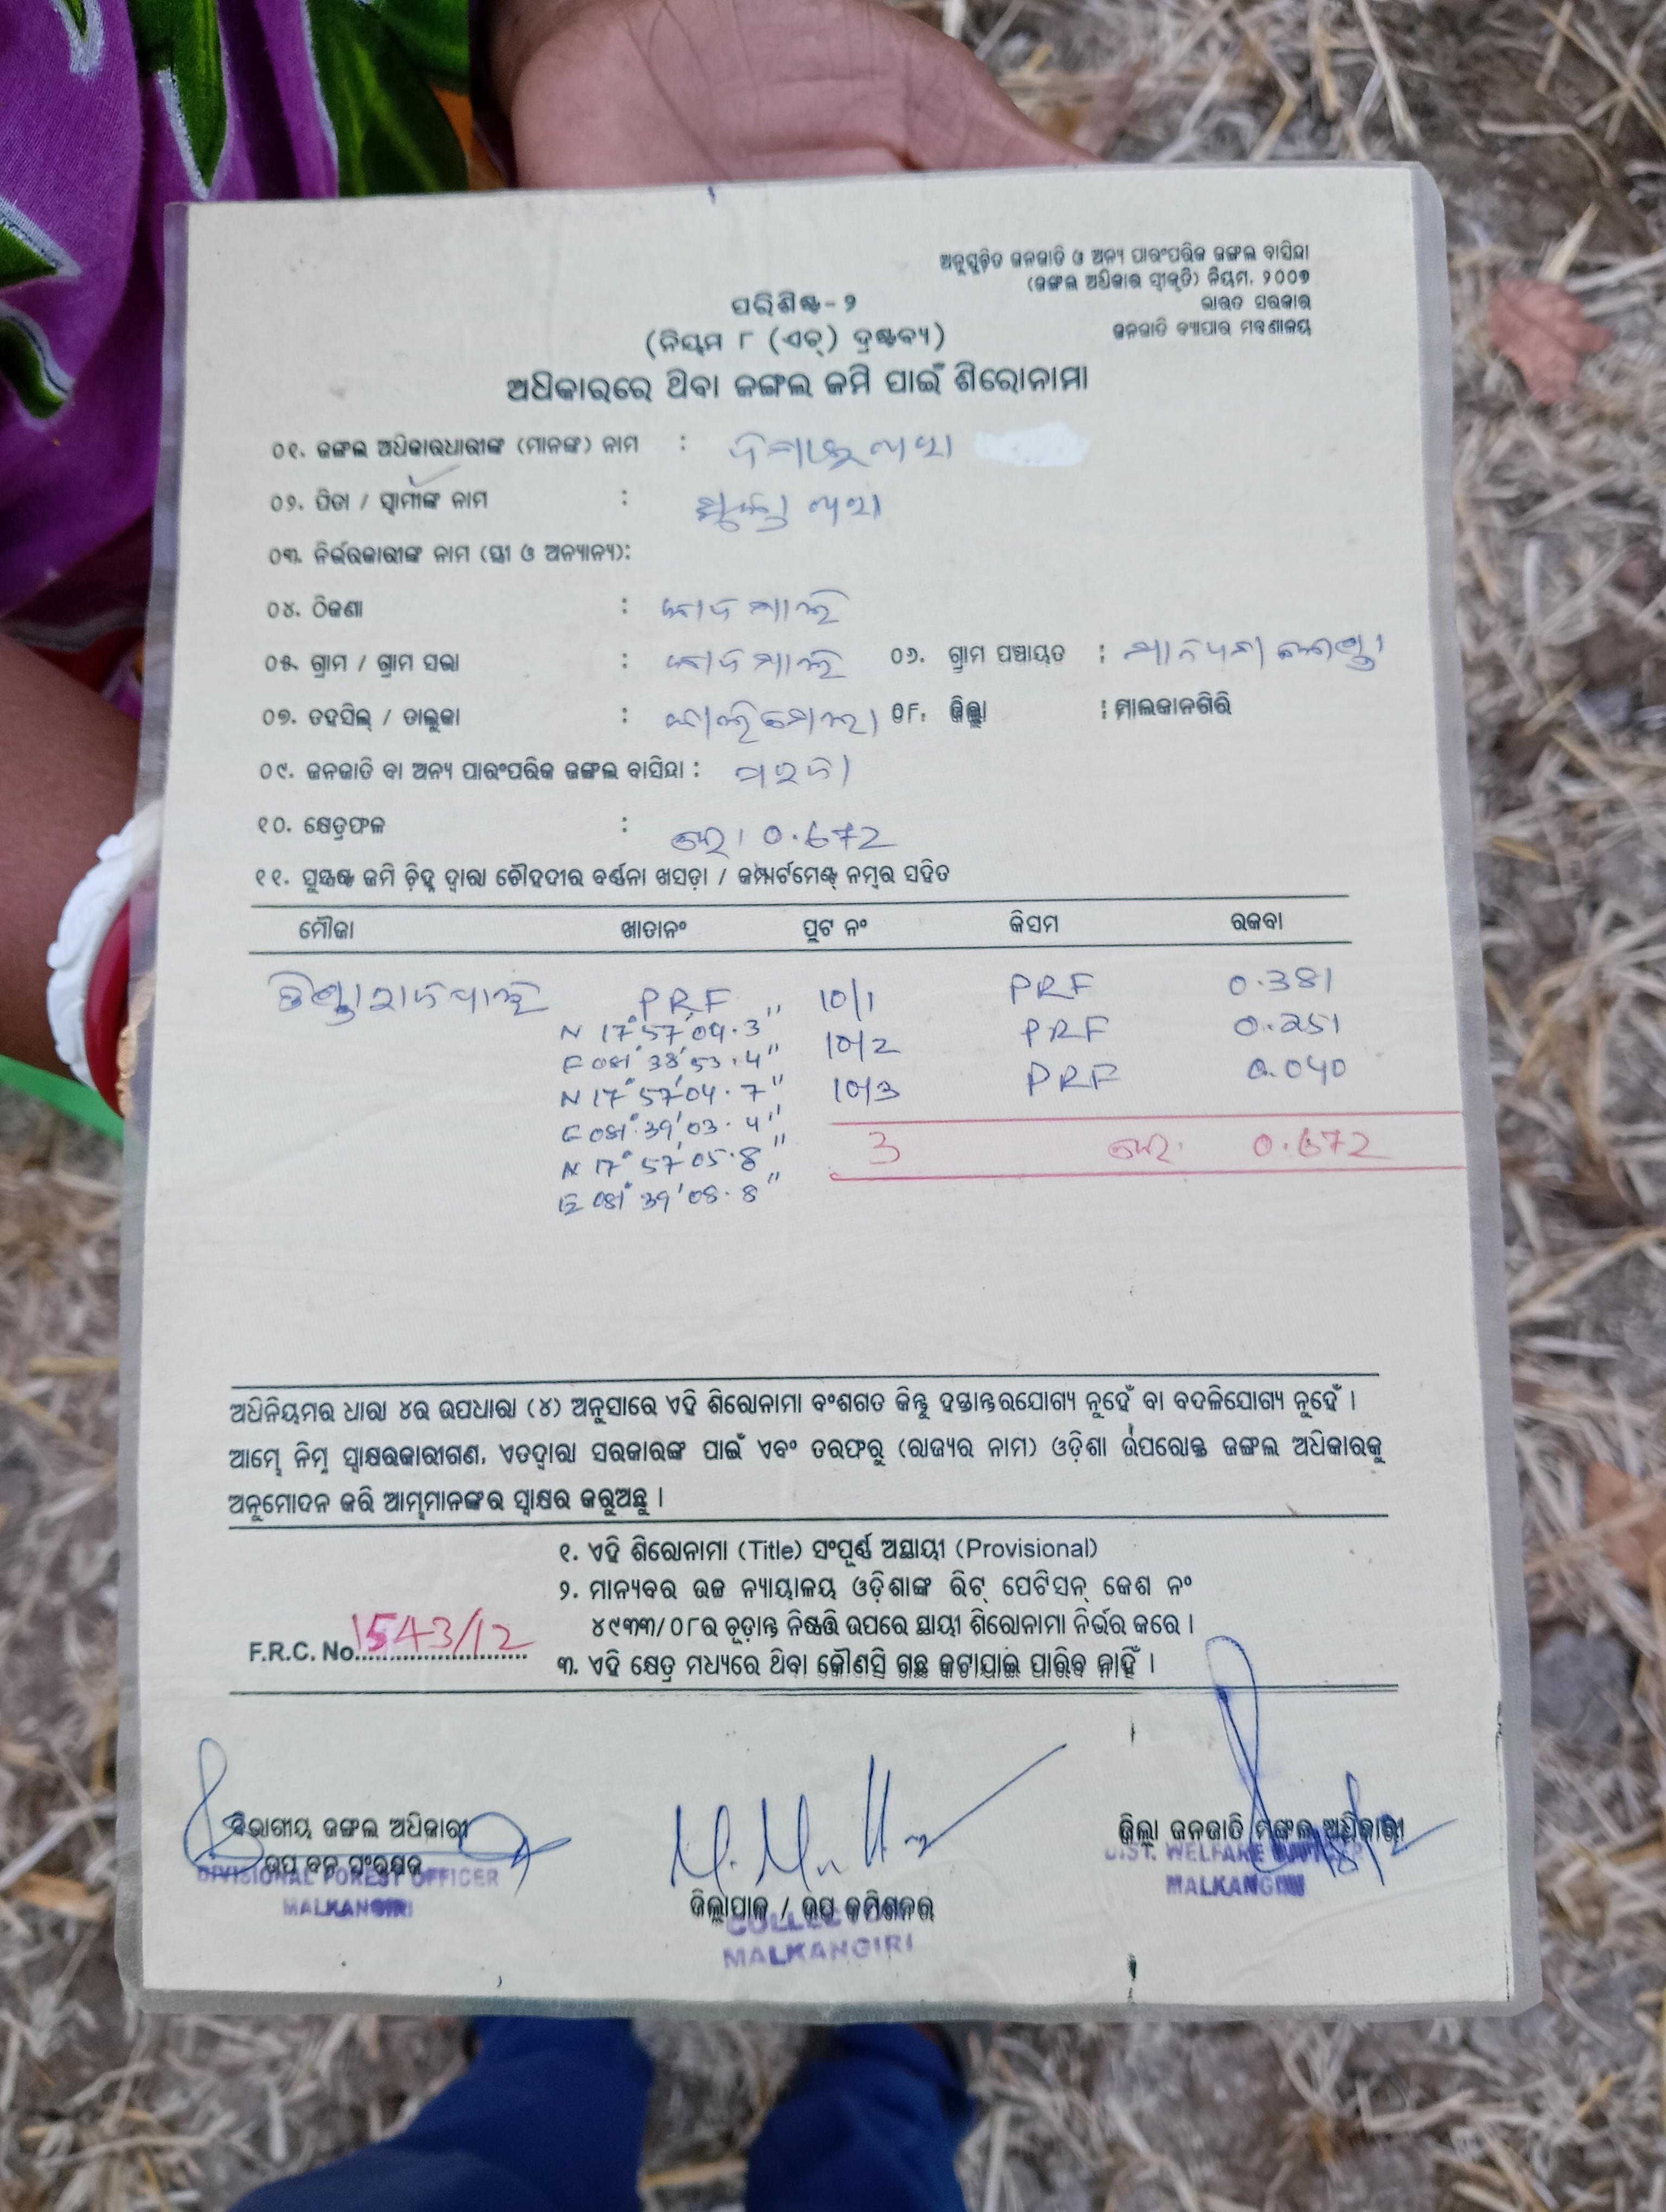 ଅନୁସୂଚିତ ଜନଜାତି ଓ ଅନ୍ୟ ପାରଂପରିକ ଜଙ୍ଗଲ ବାସିନ୍ଦା
(ଜଙ୍ଗଲ ଅଧିକାର ସ୍ୱୀକୃତି) ନିୟମ, ୨୦୦୭
ଭାରତ ସରକାର
ଜନଜାତି ବ୍ୟାପାର ମନ୍ତ୍ରଣାଳୟ
ପରିଶିଷ୍ଟ - ୨
(ନିୟମ ୮ (ଏଚ୍) ଦ୍ରଷ୍ଟବ୍ୟ)
ଅଧିକାରରେ ଥିବା ଜଙ୍ଗଲ ଜମି ପାଇଁ ଶିରୋନାମା
୦୧. ଜଙ୍ଗଲ ଅଧିକାରଧାରୀଙ୍କ (ମାନଙ୍କ) ନାମ :
୦୨. ପିତା / ସ୍ୱାମୀଙ୍କ ନାମ :
୦୩. ନିର୍ଭରକାରୀଙ୍କ ନାମ (ସ୍ତ୍ରୀ ଓ ଅନ୍ୟାନ୍ୟ):
୦୪. ଠିକଣା :
୦୫. ଗ୍ରାମ / ଗ୍ରାମ ସଭା : ୦୬. ଗ୍ରାମ ପଞ୍ଚାୟତ :
୦୭. ତହସିଲ୍ / ତାଲୁକା : କାଲିମେଲା ୦୮. ଜିଲ୍ଲା : ମାଲକାନଗିରି
୦୯. ଜନଜାତି ବା ଅନ୍ୟ ପାରଂପରିକ ଜଙ୍ଗଲ ବାସିନ୍ଦା :
୧୦. କ୍ଷେତ୍ରଫଳ : ହେ। 0.672
୧୧. ସୁସ୍ପଷ୍ଟ ଜମି ଚିହ୍ନ ଦ୍ୱାରା ଚୌହଦୀର ବର୍ଣ୍ଣନା ଖସଡ଼ା / କମ୍ପାର୍ଟମେଣ୍ଟ୍ ନମ୍ବର ସହିତ
ମୌଜା ଖାତାନଂ ପ୍ଲଟ ନଂ କିସମ ରକବା
PRF 10/1 PRF 0.381
N 17°57'04.3"
E 081°38'53.4" 10/2 PRF 0.251
N 17°57'04.7" 10/3 PRF 0.040
E 081°39'03.4"
N 17°57'05.8" 3 ହେ. 0.672
E 081°39'08.8"
ଅଧିନିୟମର ଧାରା ୪ର ଉପଧାରା (୪) ଅନୁସାରେ ଏହି ଶିରୋନାମା ବଂଶଗତ କିନ୍ତୁ ହସ୍ତାନ୍ତରଯୋଗ୍ୟ ନୁହେଁ ବା ବଦଳିଯୋଗ୍ୟ ନୁହେଁ ।
ଆମ୍ଭେ ନିମ୍ନ ସ୍ୱାକ୍ଷରକାରୀଗଣ, ଏତଦ୍ୱାରା ସରକାରଙ୍କ ପାଇଁ ଏବଂ ତରଫରୁ (ରାଜ୍ୟର ନାମ) ଓଡ଼ିଶା ଉପରୋକ୍ତ ଜଙ୍ଗଲ ଅଧିକାରକୁ
ଅନୁମୋଦନ କରି ଆମ୍ଭମାନଙ୍କର ସ୍ୱାକ୍ଷର କରୁଅଛୁ ।
୧. ଏହି ଶିରୋନାମା (Title) ସଂପୂର୍ଣ୍ଣ ଅସ୍ଥାୟୀ (Provisional)
୨. ମାନ୍ୟବର ଉଚ୍ଚ ନ୍ୟାୟାଳୟ ଓଡ଼ିଶାଙ୍କ ରିଟ୍ ପେଟିସନ୍ କେଶ ନଂ
୪୯୩୩/୦୮ର ଚୂଡ଼ାନ୍ତ ନିଷ୍ପତ୍ତି ଉପରେ ସ୍ଥାୟୀ ଶିରୋନାମା ନିର୍ଭର କରେ ।
F.R.C. No. 1543/12
୩. ଏହି କ୍ଷେତ୍ର ମଧ୍ୟରେ ଥିବା କୌଣସି ଗଛ କଟାଯାଇ ପାରିବ ନାହିଁ ।
ବିଭାଗୀୟ ଜଙ୍ଗଲ ଅଧିକାରୀ
ଉପ ବନ ସଂରକ୍ଷକ
DIVISIONAL FOREST OFFICER
MALKANGIRI
ଜିଲ୍ଲାପାଳ / ଉପ କମିଶନର
MALKANGIRI
ଜିଲ୍ଲା ଜନଜାତି ମଙ୍ଗଳ ଅଧିକାରୀ
DIST. WELFARE OFFICER
MALKANGIRI